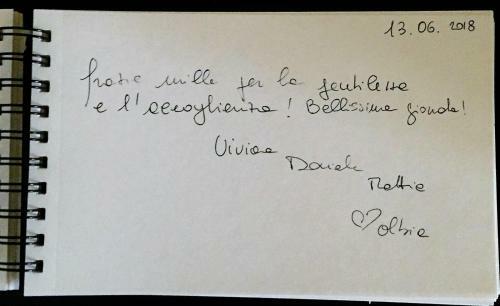 13.06.2018
Grazie mille per la gentilezza
e l'accoglienza! Bellissima giornata!
Viviana
Daniele
Mattia
Olbia